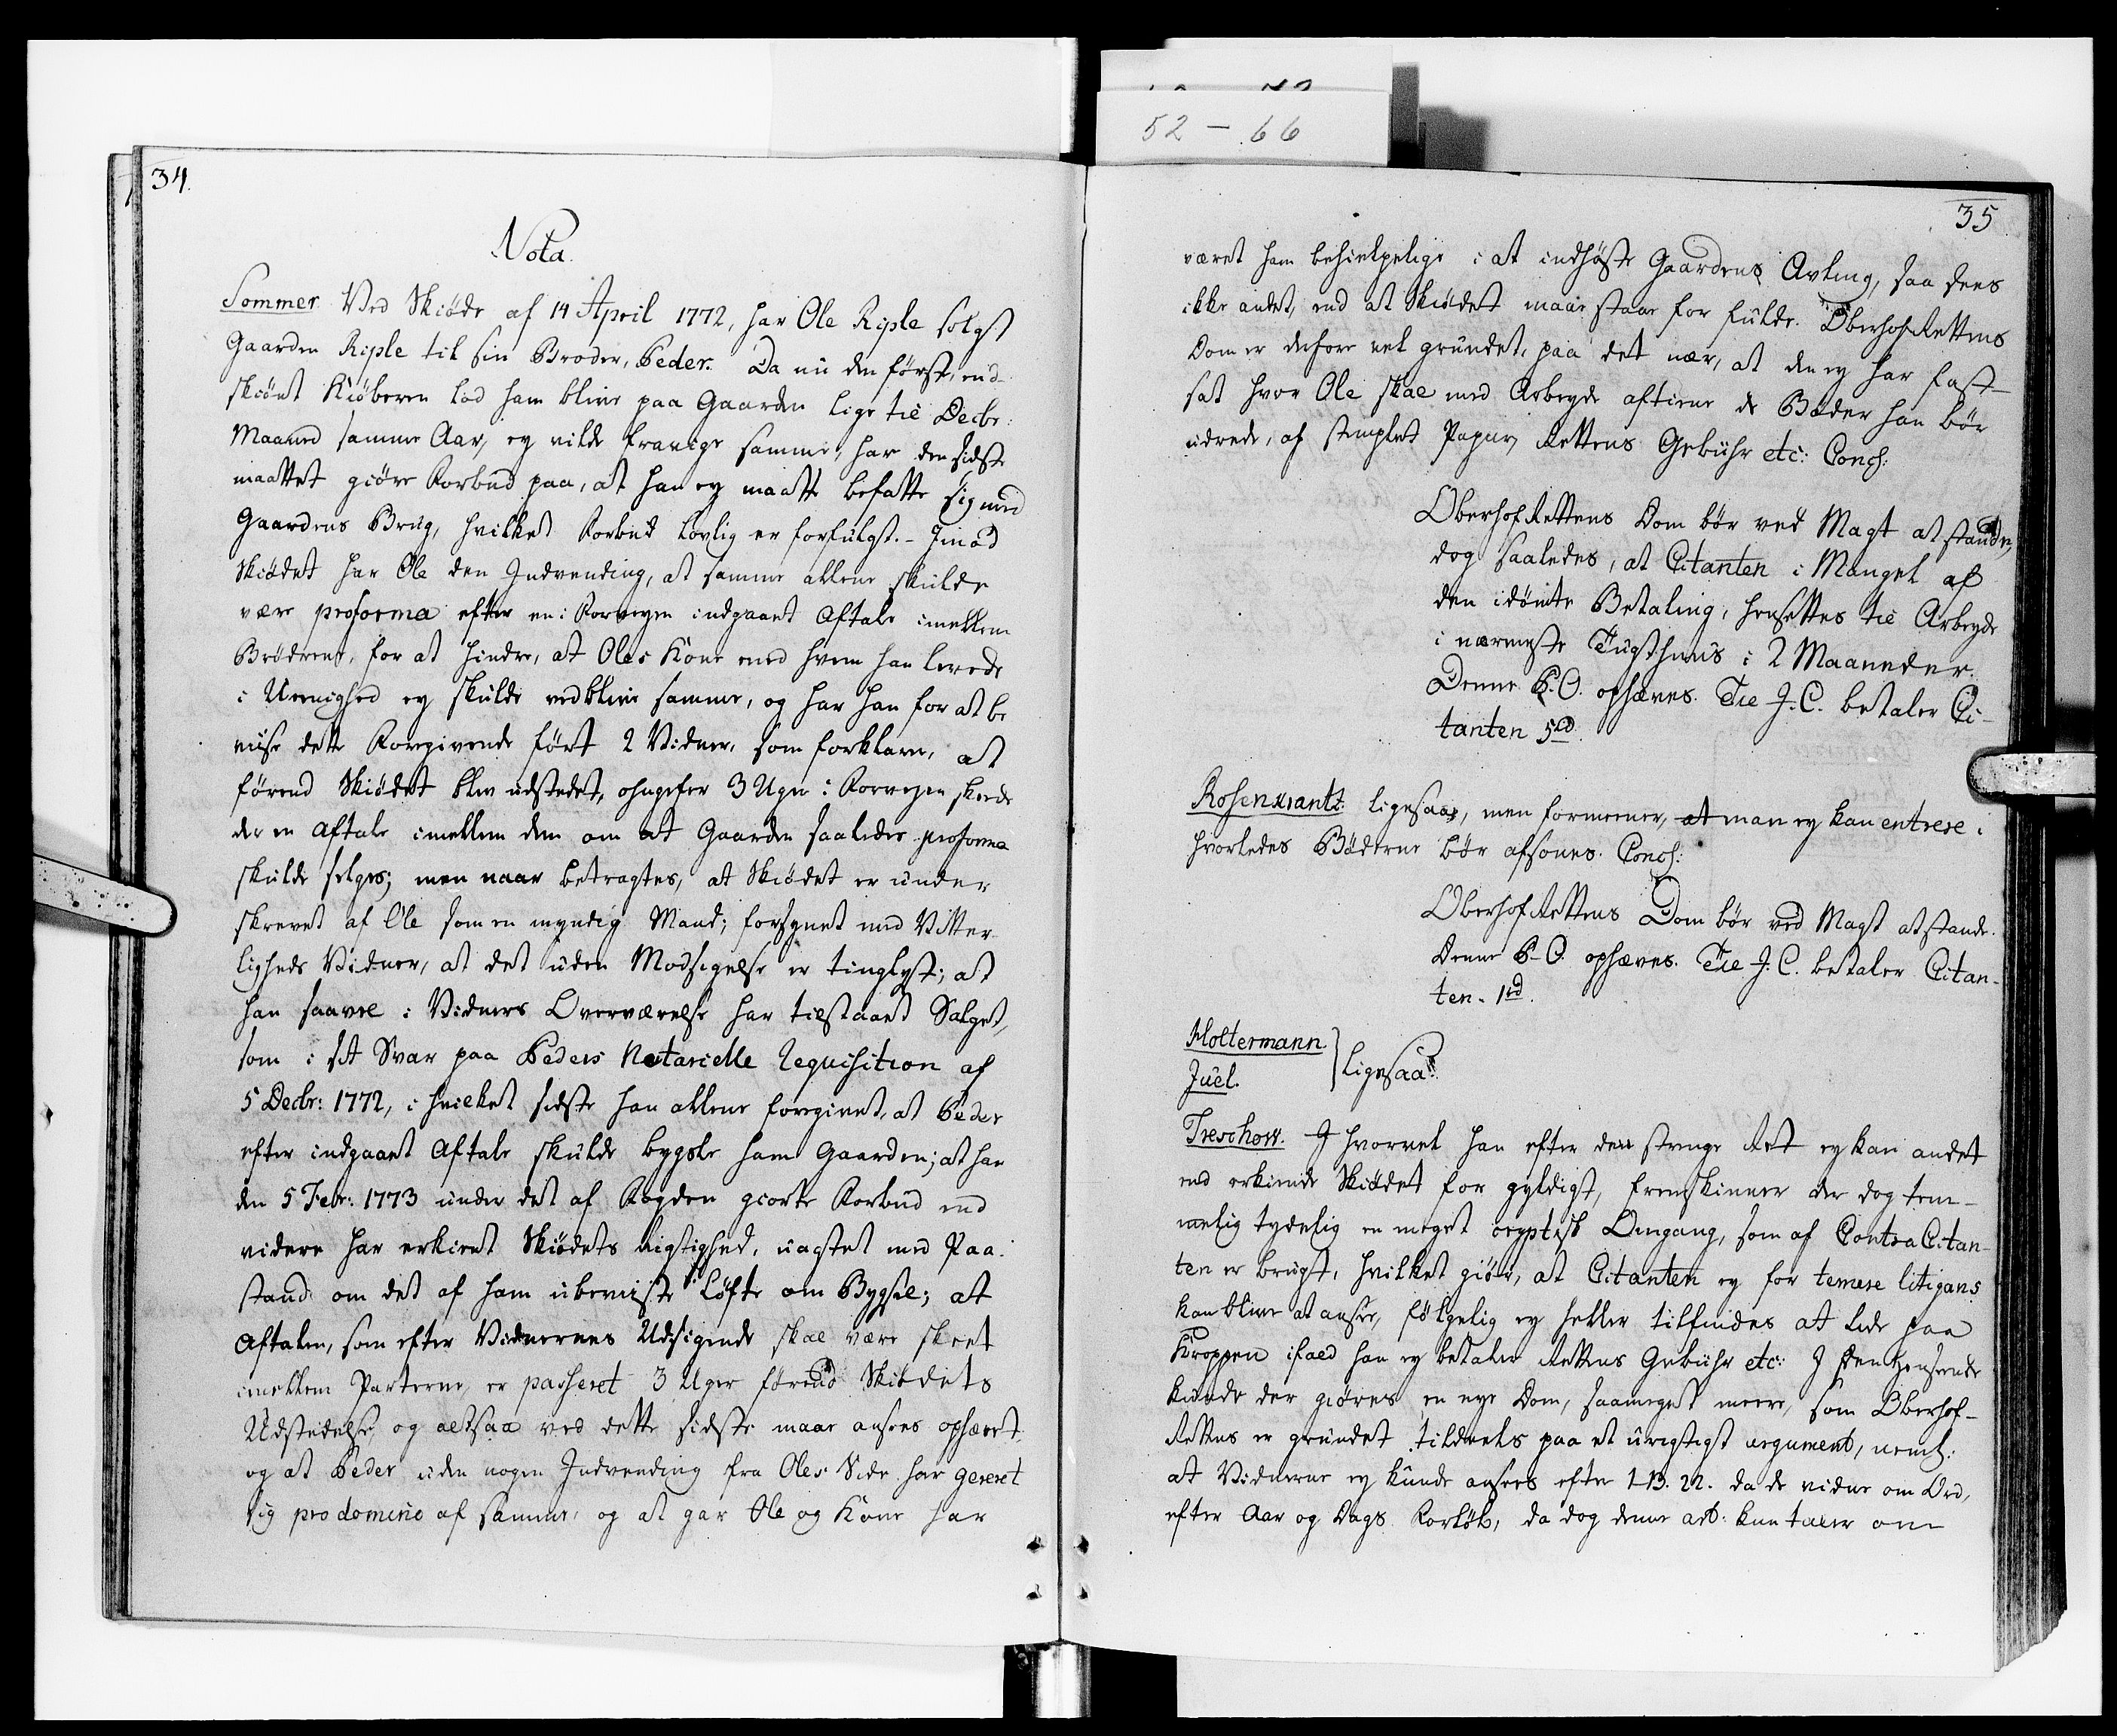 52 - 66
34.
Nota.
Sommer. Ved Skiøde af 14 April 1772, har Ole Riple solgt
Gaarden Riple til sin Broder, Peder. Da nu den første, end-
skiønt Kiøberen lod ham blive paa Gaarden lige til Decbr:
Maaned samme Aar, ey vilde fravige samme, har den sidste
maattet giøre Forbud paa, at han ey maatte befatte sig med
Gaardens Brug, hvilket Forbud lovlig er forfulgt. - Imod
Skiødet har Ole den Indvending, at samme allene skulde
være proforma efter en i Forveyen indgaaet Aftale imellem
Brødrene, for at hindre, at Oles Kone med hvem han levede
i Ueenighed ey skulde vedblive samme, og har han for at be
viise dette Foregivende ført 2 Vidner, som forklare, at
førend Skiødet blev udstedet, ohngefer 3 Uger i Forveyen skeede
der en Aftale imellem dem om at Gaarden saaledes proforma
skulde selges; men naar betragtes, at Skiødet er under
skrevet af Ole som en myndig Mand; forsynet med Vitter-
ligheds Vidner, at det uden Modsigelse er tinglyst; at
han saavel i Vidners Overværelse har tilstaaet Salget,
som i sit Svar paa Peders Notarielle Requisition af
5 Decbr: 1772, i hvilket sidste han allene foregivet, at Peder
efter indgaaet Aftale skulde bygsle ham Gaarden; at han
den 5 Febr: 1773 under det af Fogden giorte Forbud end
videre har erkient Skiødets Rigtighed, uagtet med Paa-
stand om det af ham ubeviiste Løfte om Bygsel; at
Aftalen, som efter Vidnernes Udsigende skal være skeet
imellem Parterne, er passeret 3 Uger førend Skiødets
Udstedelse, og altsaa ved dette sidste maae ansees ophævet,
og at Peder uden nogen Indvending fra Oles Side har gereret
sig pro domino af samme, og at gar Ole og Kone har
35
været ham behielpelige i at indhøste Gaardens Avling, saa sees
ikke andet, end at Skiødet maae staae for fulde. OberhofRettens
Dom er derfore vel grundet, paa det nær, at den ey har fast-
sat hvor Ole skal med Arbeyde aftiene de Bøder han bør
udrede, af stemplet Papiir, Rettens Gebühr etc: Concl:
OberhofRettens Dom bør ved Magt at stande,
dog saaledes, at Citanten i Mangel af
den idømte Betaling, hensettes til Arbeyde
i nærmeste Tugthuus i 2 Maaneder.
Denne P. O. ophæves. Til J. C. betaler Ci-
tanten 5 rd.
Rosenkrantz. ligesaa, men formeener, at man ey kan entrere i
hvorledes Bøderne bør afsones. Concl:
OberhofRettens Dom bør ved Magt at stande.
Denne P. O. ophæves. Til J. C. betaler Citan-
ten 1 rd.
Holtermann.
Juel. } Ligesaa.
Treschow. I hvorvel han efter den strenge Ret ey kan andet
end erkiende Skiødet for gyldigt, fremskinner der dog tem-
melig tydelig en meget Omgang, som af ContraCitan-
ten er brugt, hvilket giør, at Citanten ey for temere litigans
kan blive at ansee, følgelig ey heller tilfindes at lide paa
Kroppen ifald han ey betaler Rettens Gebühr etc: I den Henseende
kunde der giøres en nye Dom, saameget meere, som Oberhof-
Rettens er grundet tildeels paa et urigtigt argument, neml:
at Vidnerne ey kunde ansees efter 1-13. 22. da de vidne om Ord,
efter Aar og Dags Forløb, da dog denne art: kun taler om